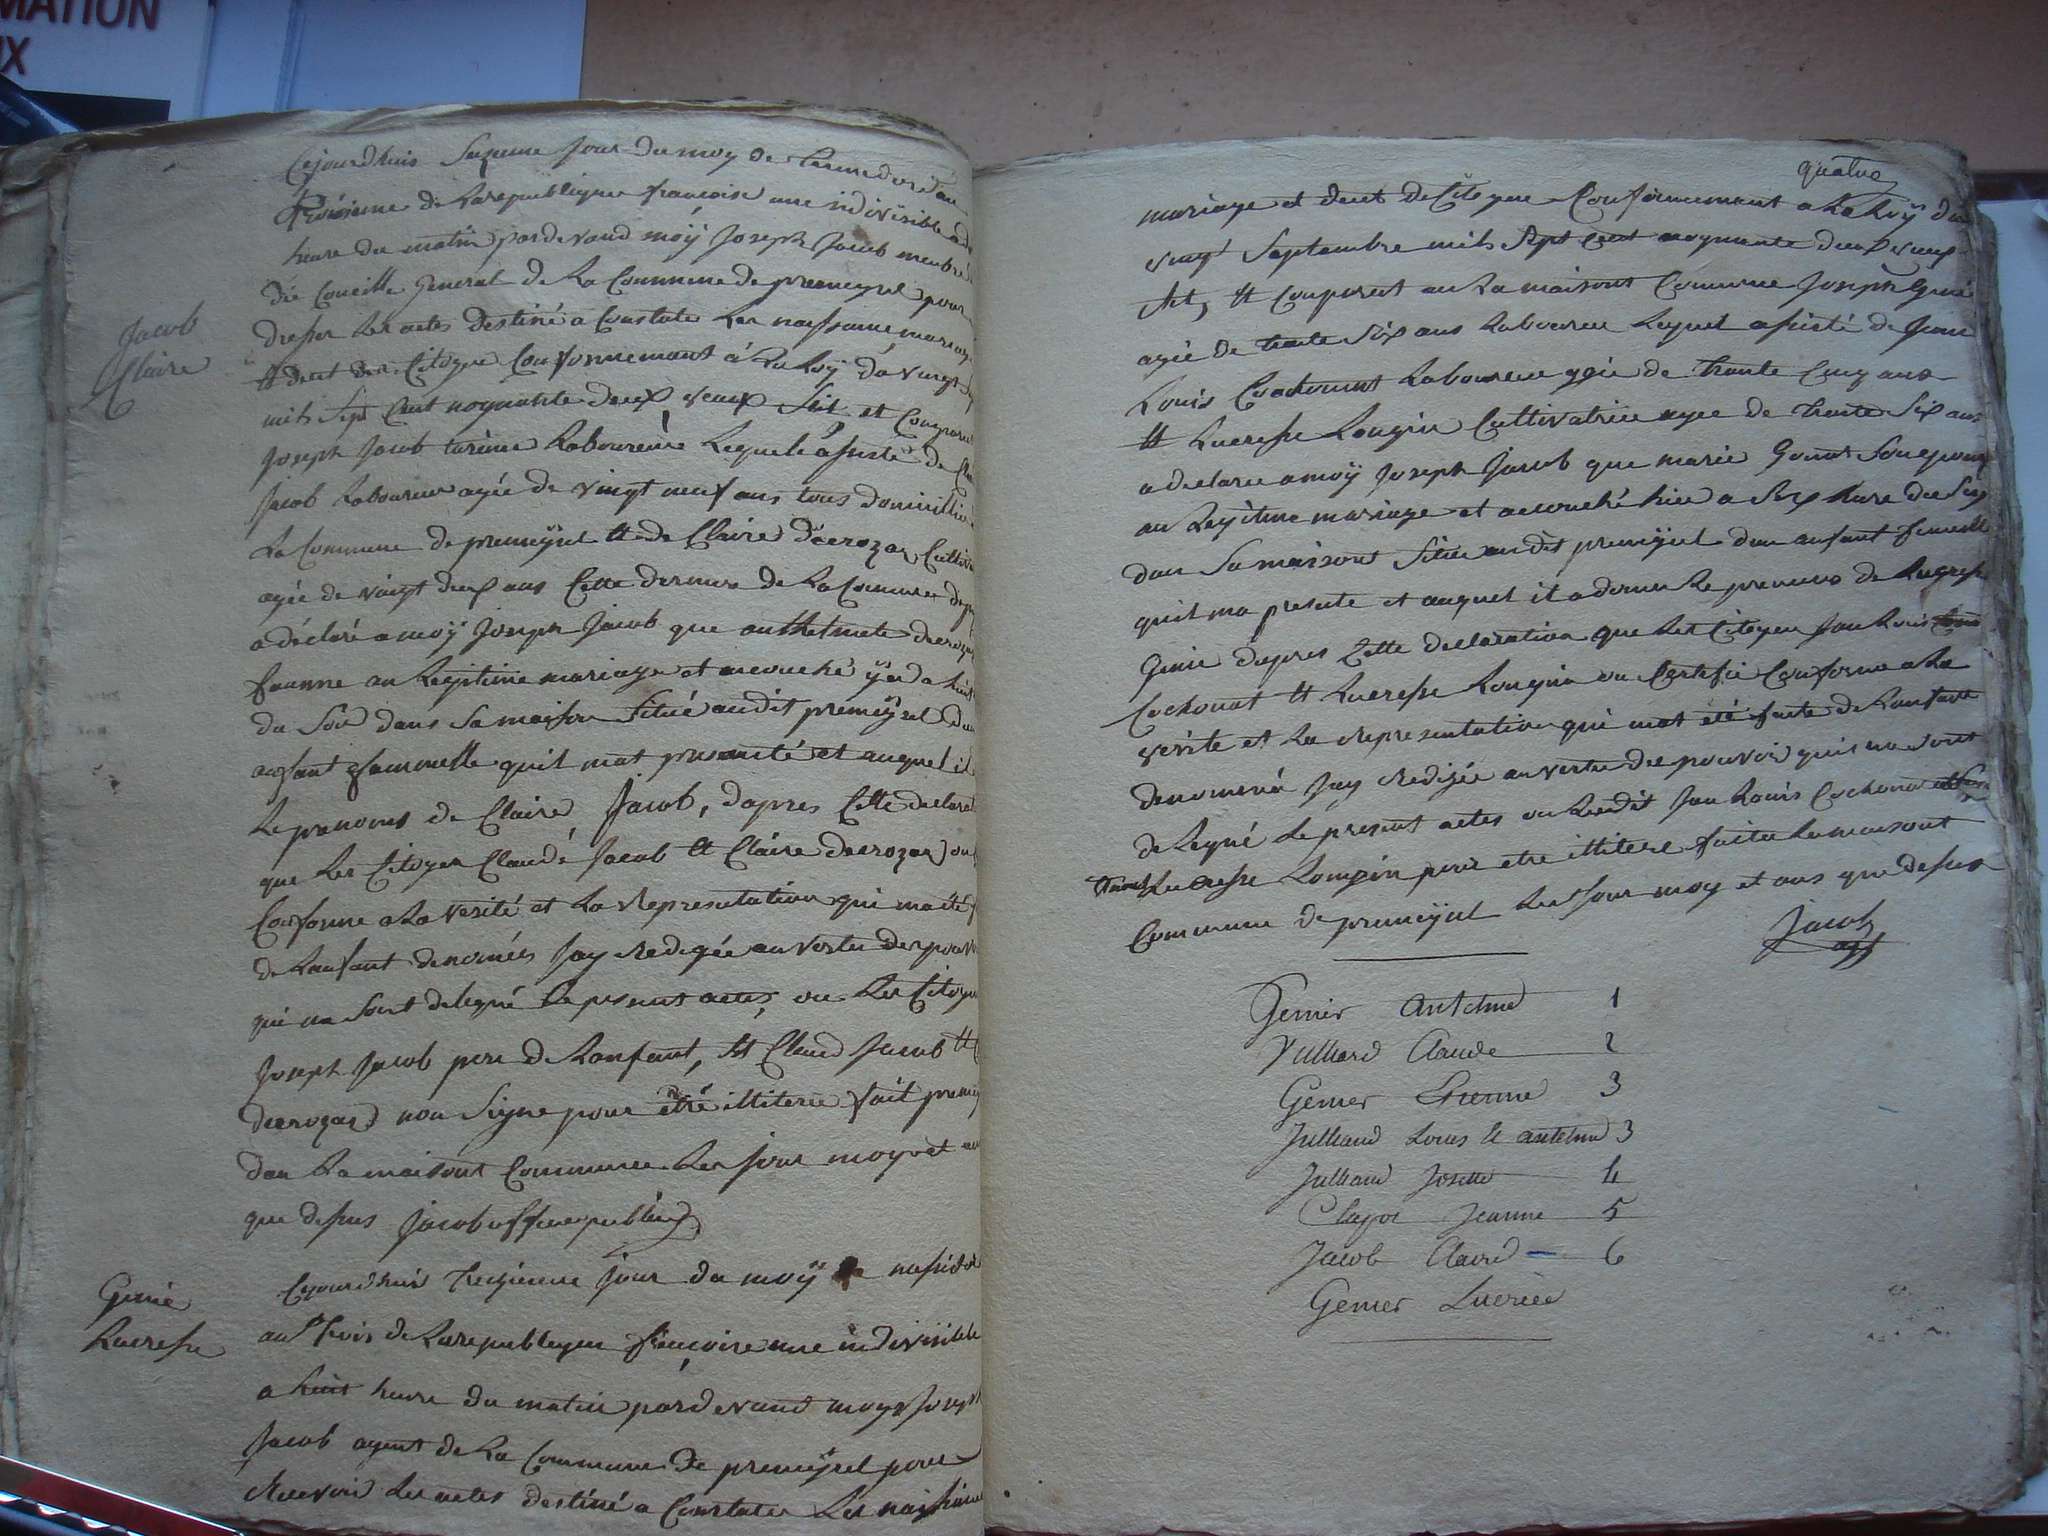 MATION
X
Cejourdhuis Sezieme Jour du moy de
troisieme de Larepublique francoise une indivisible
heure du matin pardevand moÿ Joseph Jacob menbre
die Coneille General de La Commune de premeyzel pour
dresser Les actes destiné a Constater Les naissance mariage
Jacob
Claire
tt decet des Citoyen Conformemant á La Loÿ du vingt
mils Sept Cent noynante deux vieux Stil et Comparu
Joseph Jacob Laboureure Lequele assisté de
Jacob Laboureur agée de vingt neuf ans tous domicillié
La Commune de premeÿzel tt de Claire decrozas Cultiva
agée de vingt deux ans Cette derniere de La Commune
a déclaré a moÿ Joseph Jacob que anthelmete
famme an Legitime mariage et acouché
du Soir dans Sa maison Situé audit premeÿzel dun
anfant femmelle quil mat presanté et auquel il
Le prenoms de Claire Jacob, dapres Cette declarat
que Les Citoyen Claude Jacob tt Claire decrozas on
Conforme a La verité et La Representation qui ma eté
de Lanfant denomés Jay Redigée an vertu des pouvoi
qui me Sont delegué Le present actes, ou Les Citoyen
Joseph Jacob pere de Lanfant, tt Claud Jacob tt
decrozas non Signe pour étré illiteré fait premey
dan La maisont Commune Les Jour moy et an
que desus Jacob officier public
Genié
Lucresse
Cejourdhuis Treizieme Jour du moÿ messidor
an trois de Larepublique francoise une indivisible
a huit heure du matin pardevand moy Joseph
Jacob agent de La Commune de premeyzel pour
Recevoir Les actes destiné a Constater Les naissance
quatre
mariage et decet de Citoyen Conformemant a La Loÿ du
vingt Septembre mils Sept Cent noynante deux vieux
Stil, tt Comparut an La maisont Commune Joseph Genié
agée de trante Six ans Laboureur Lequel assisté de Jean
Louis Cochonat Laboureur agée de trante Cinq ans
tt Lucresse Rougin Cultivatrice agee de trante Six ans
a declaree a moÿ Joseph Jacob que marie Sonepouse
an Legitime mariage et acouché hier a Six hure du Soir
dan Sa maisont Situé audit premeÿzel dun anfant femelle
quil ma presenté et auquel il a donné Le prenoms de Lucresse
Genie dapres Cette declaration que Les Citoyen Jan Louis
Cochonat tt Lucresse Rougin on Certifié Conforme a La
verité et La Representation qui mat été faite de Lanfant
denommé Jay Redigée an vertu des pouvoir qui me Sont
delegué Le present actes ou Ledit Jan Louis Cochona
Lucresse Rougin pour etre illiteré fait a La maisont
Commune de premeÿzel Les Jour moy et ans que desus
Jacob
agt
Genier Antelme 1
Julliard Claude 2
Genier Etienne 3
Julliand Louis & antelme 3
Julliand Josette 4
Clapor Jeanne 5
Jacob Claire 6
Genier Lucrèce